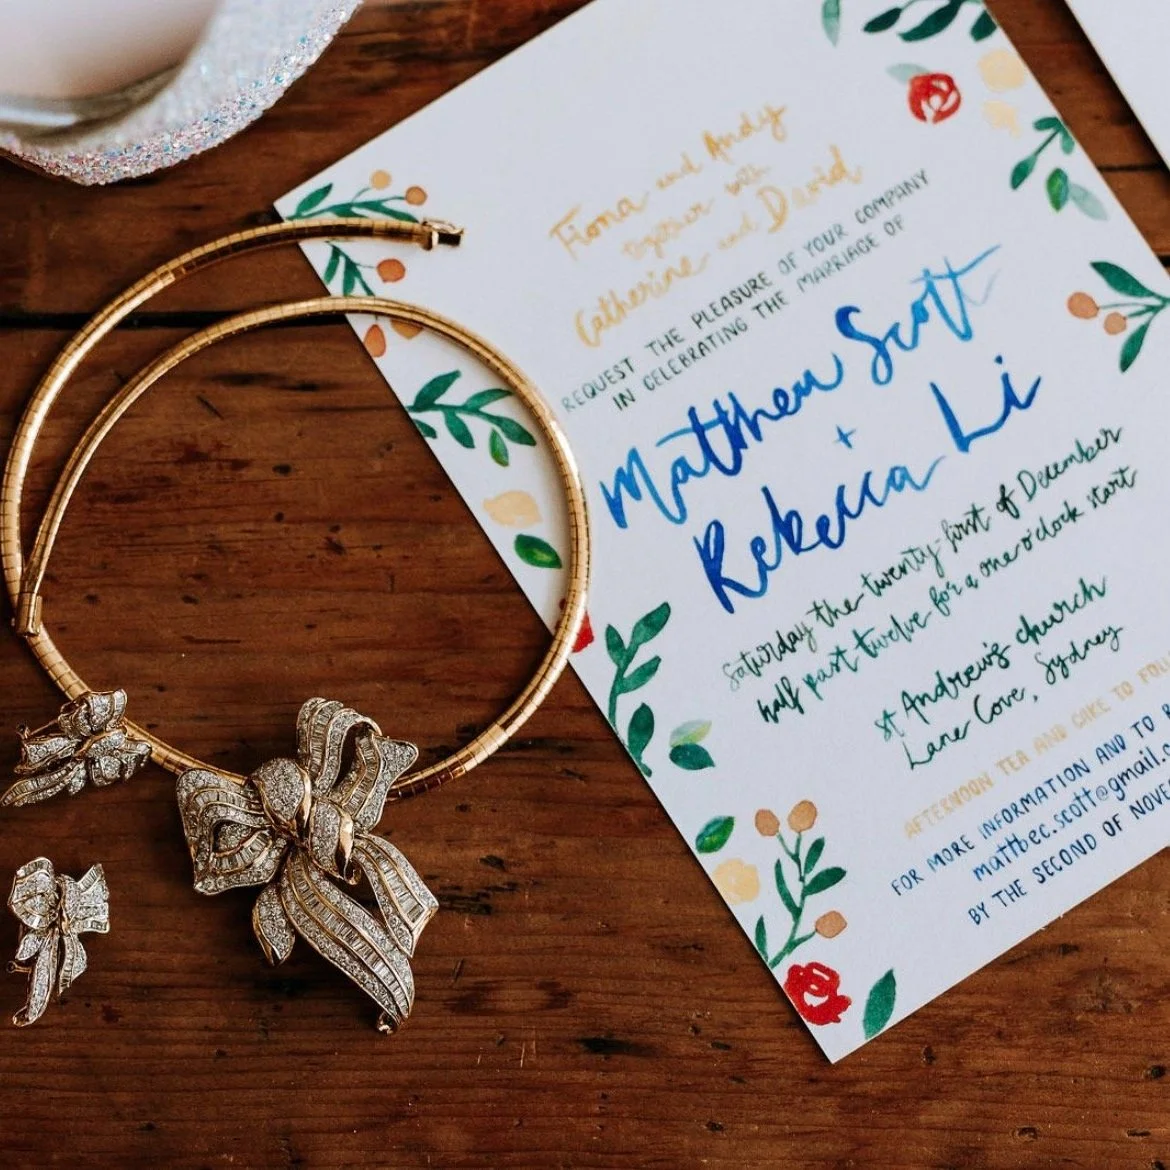 Fiona and Andy
together with
Catherine and David
REQUEST THE PLEASURE OF YOUR COMPANY
IN CELEBRATING THE MARRIAGE OF
Matthew Scott
+
Rebecca Li
Saturday the twenty-first of December
half past twelve for a one o'clock start
St Andrew's church
Lane Cove, Sydney
AFTERNOON TEA AND CAKE TO
FOR MORE INFORMATION AND TO
mattbec.scott@gmail.c
BY THE SECOND OF